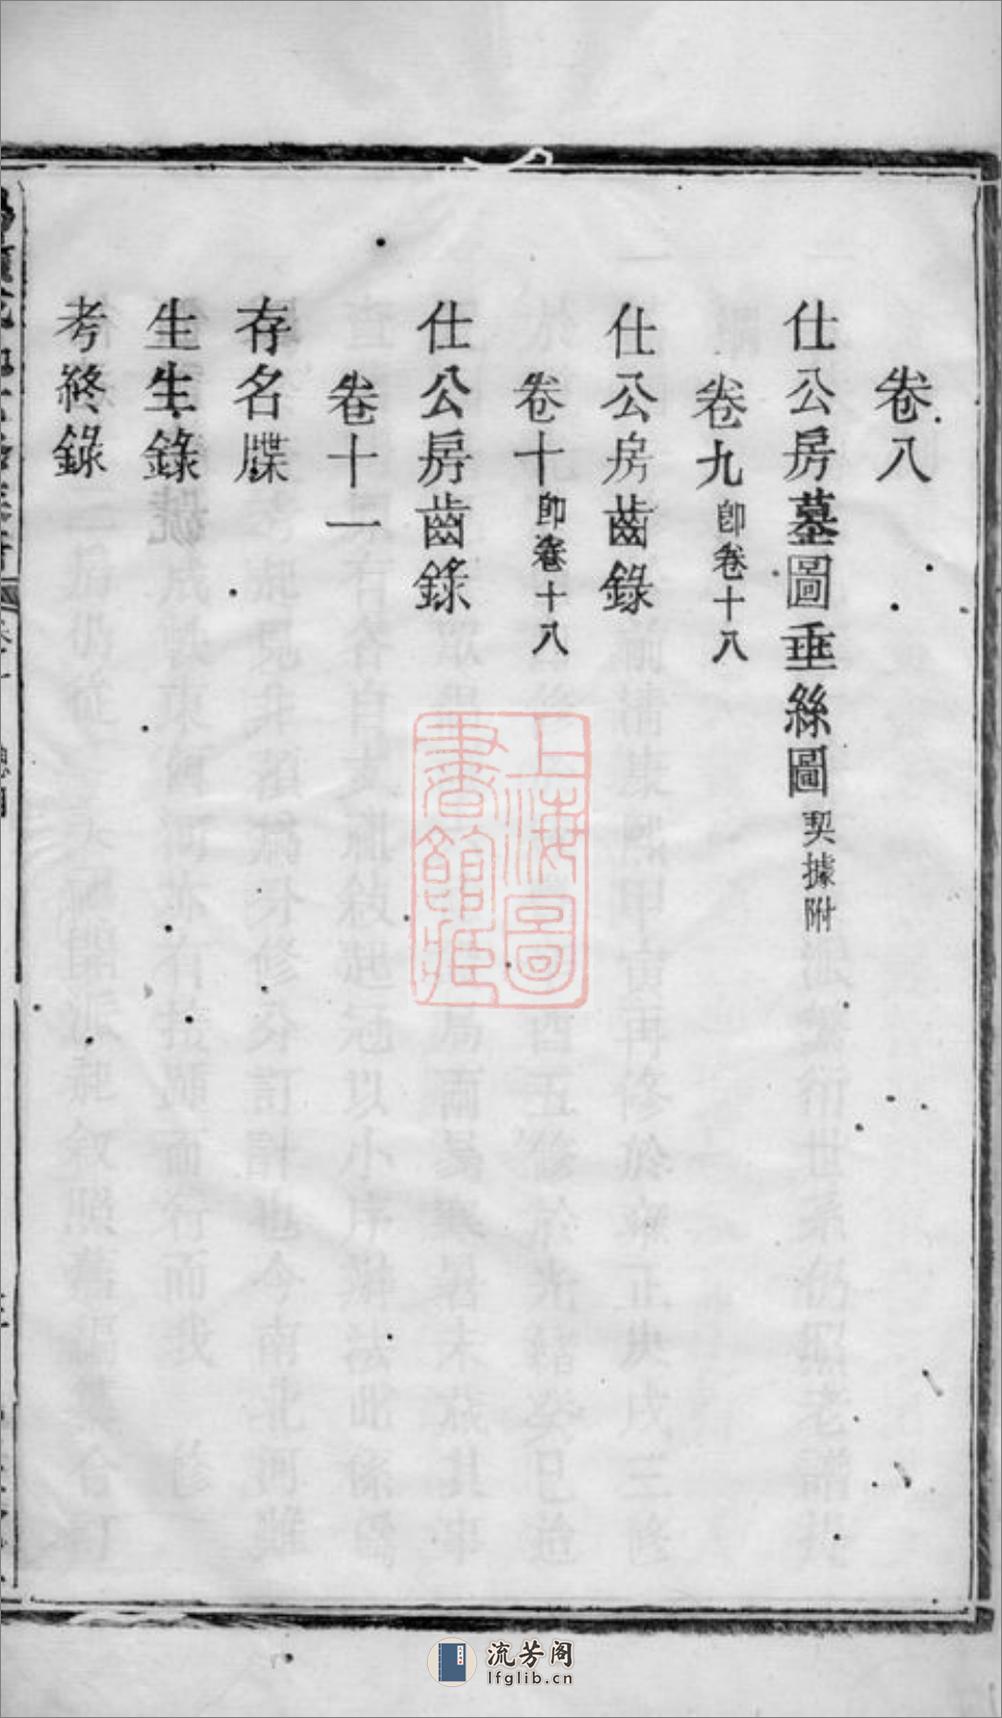 卷八
仕公房墓圖垂絲圖契據附
卷九卽卷十八
仕公房齒錄
卷十卽卷十八
仕公房齒錄
卷十一
存名牒
生生錄
考終錄
上海圖
書館藏
流芳阁
lfglib.cn